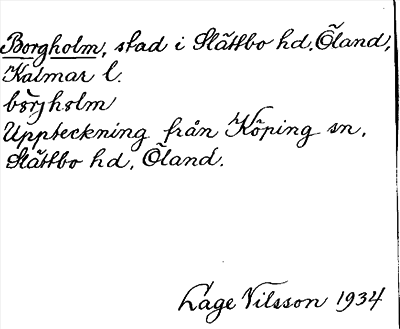 Borgholm, stad i Slättbo hd, Öland,
Kalmar l.
börjholm
Uppteckning från Köping sn,
Slättbo hd, Öland.
Lage Nilsson 1934